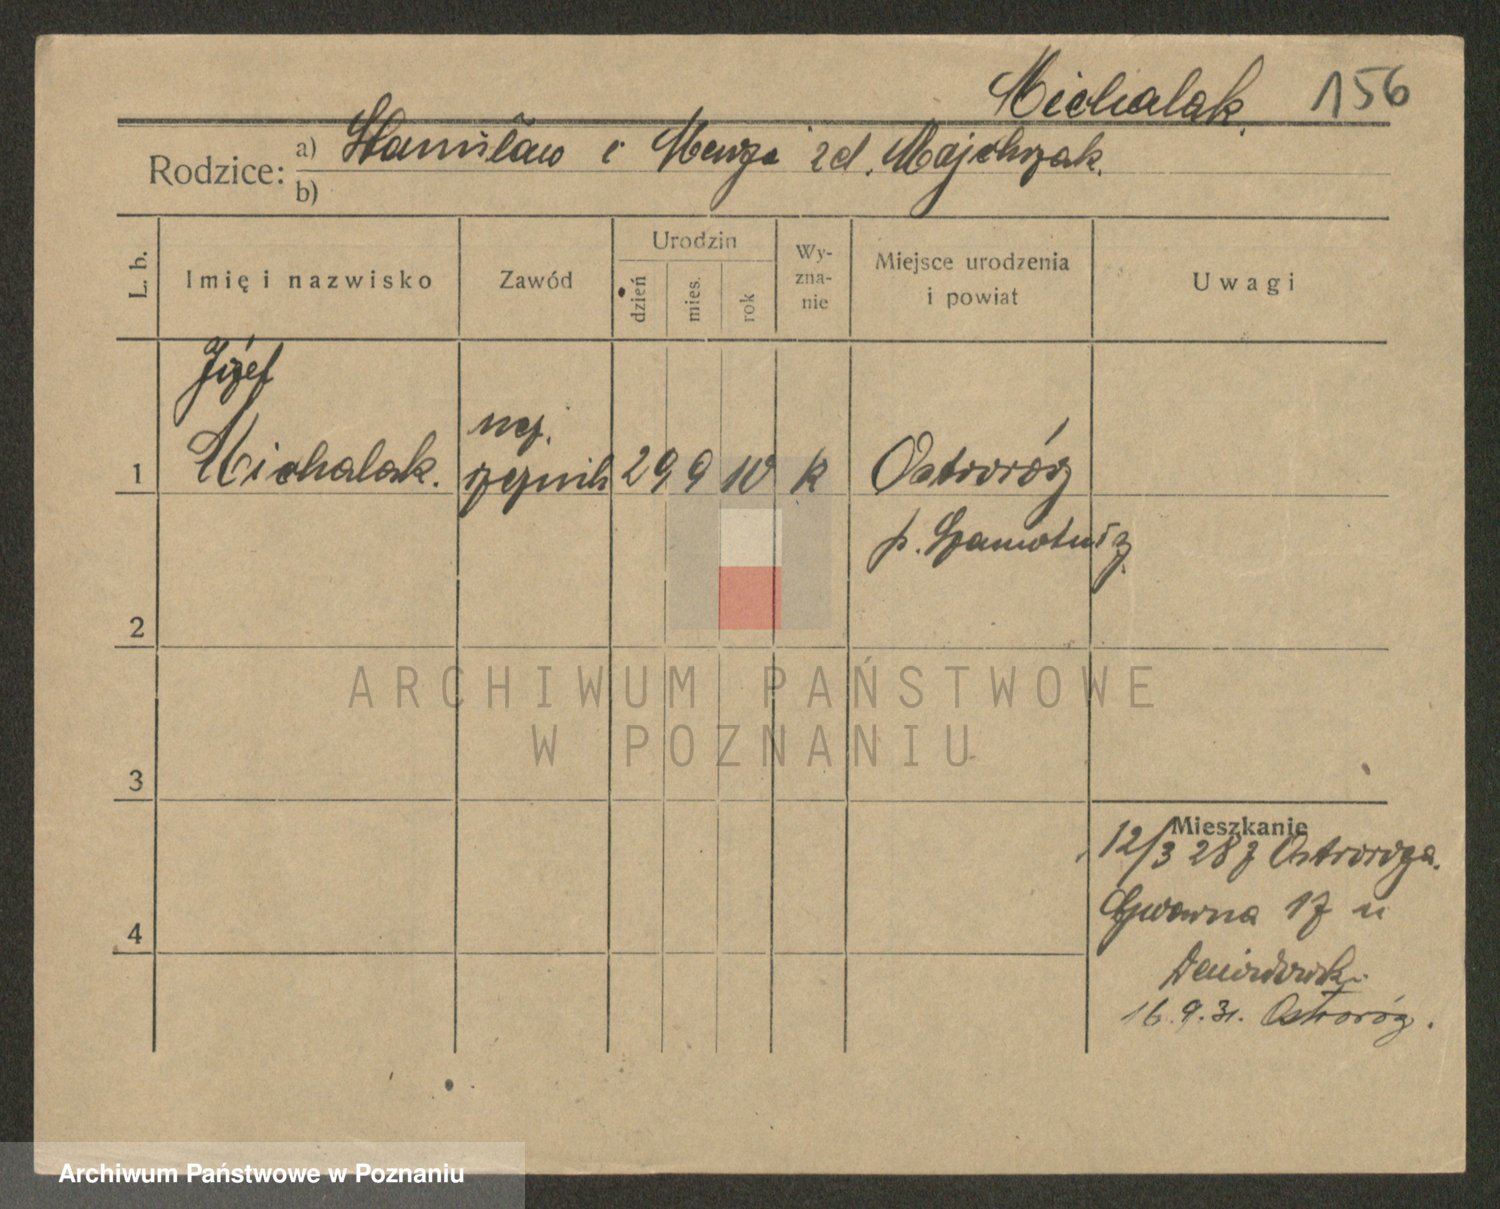 Michalak. 156
Rodzice: a) Stanisław i zd. Majchrzak.
b)
L. b. Imię i nazwisko Zawód Urodzin dzień mies. rok Wyznanie Miejsce urodzenia i powiat Uwagi
Józef
1 Michalak. rzeźnik 29 9 10 k Ostroróg
p. Szamotuły
2
ARCHIWUM PAŃSTWOWE
W POZNANIU
3
Mieszkanie
12/3 28 z Ostroroga.
4 Gwarna 17 u
16.9.31. Ostroróg.
Archiwum Państwowe w Poznaniu